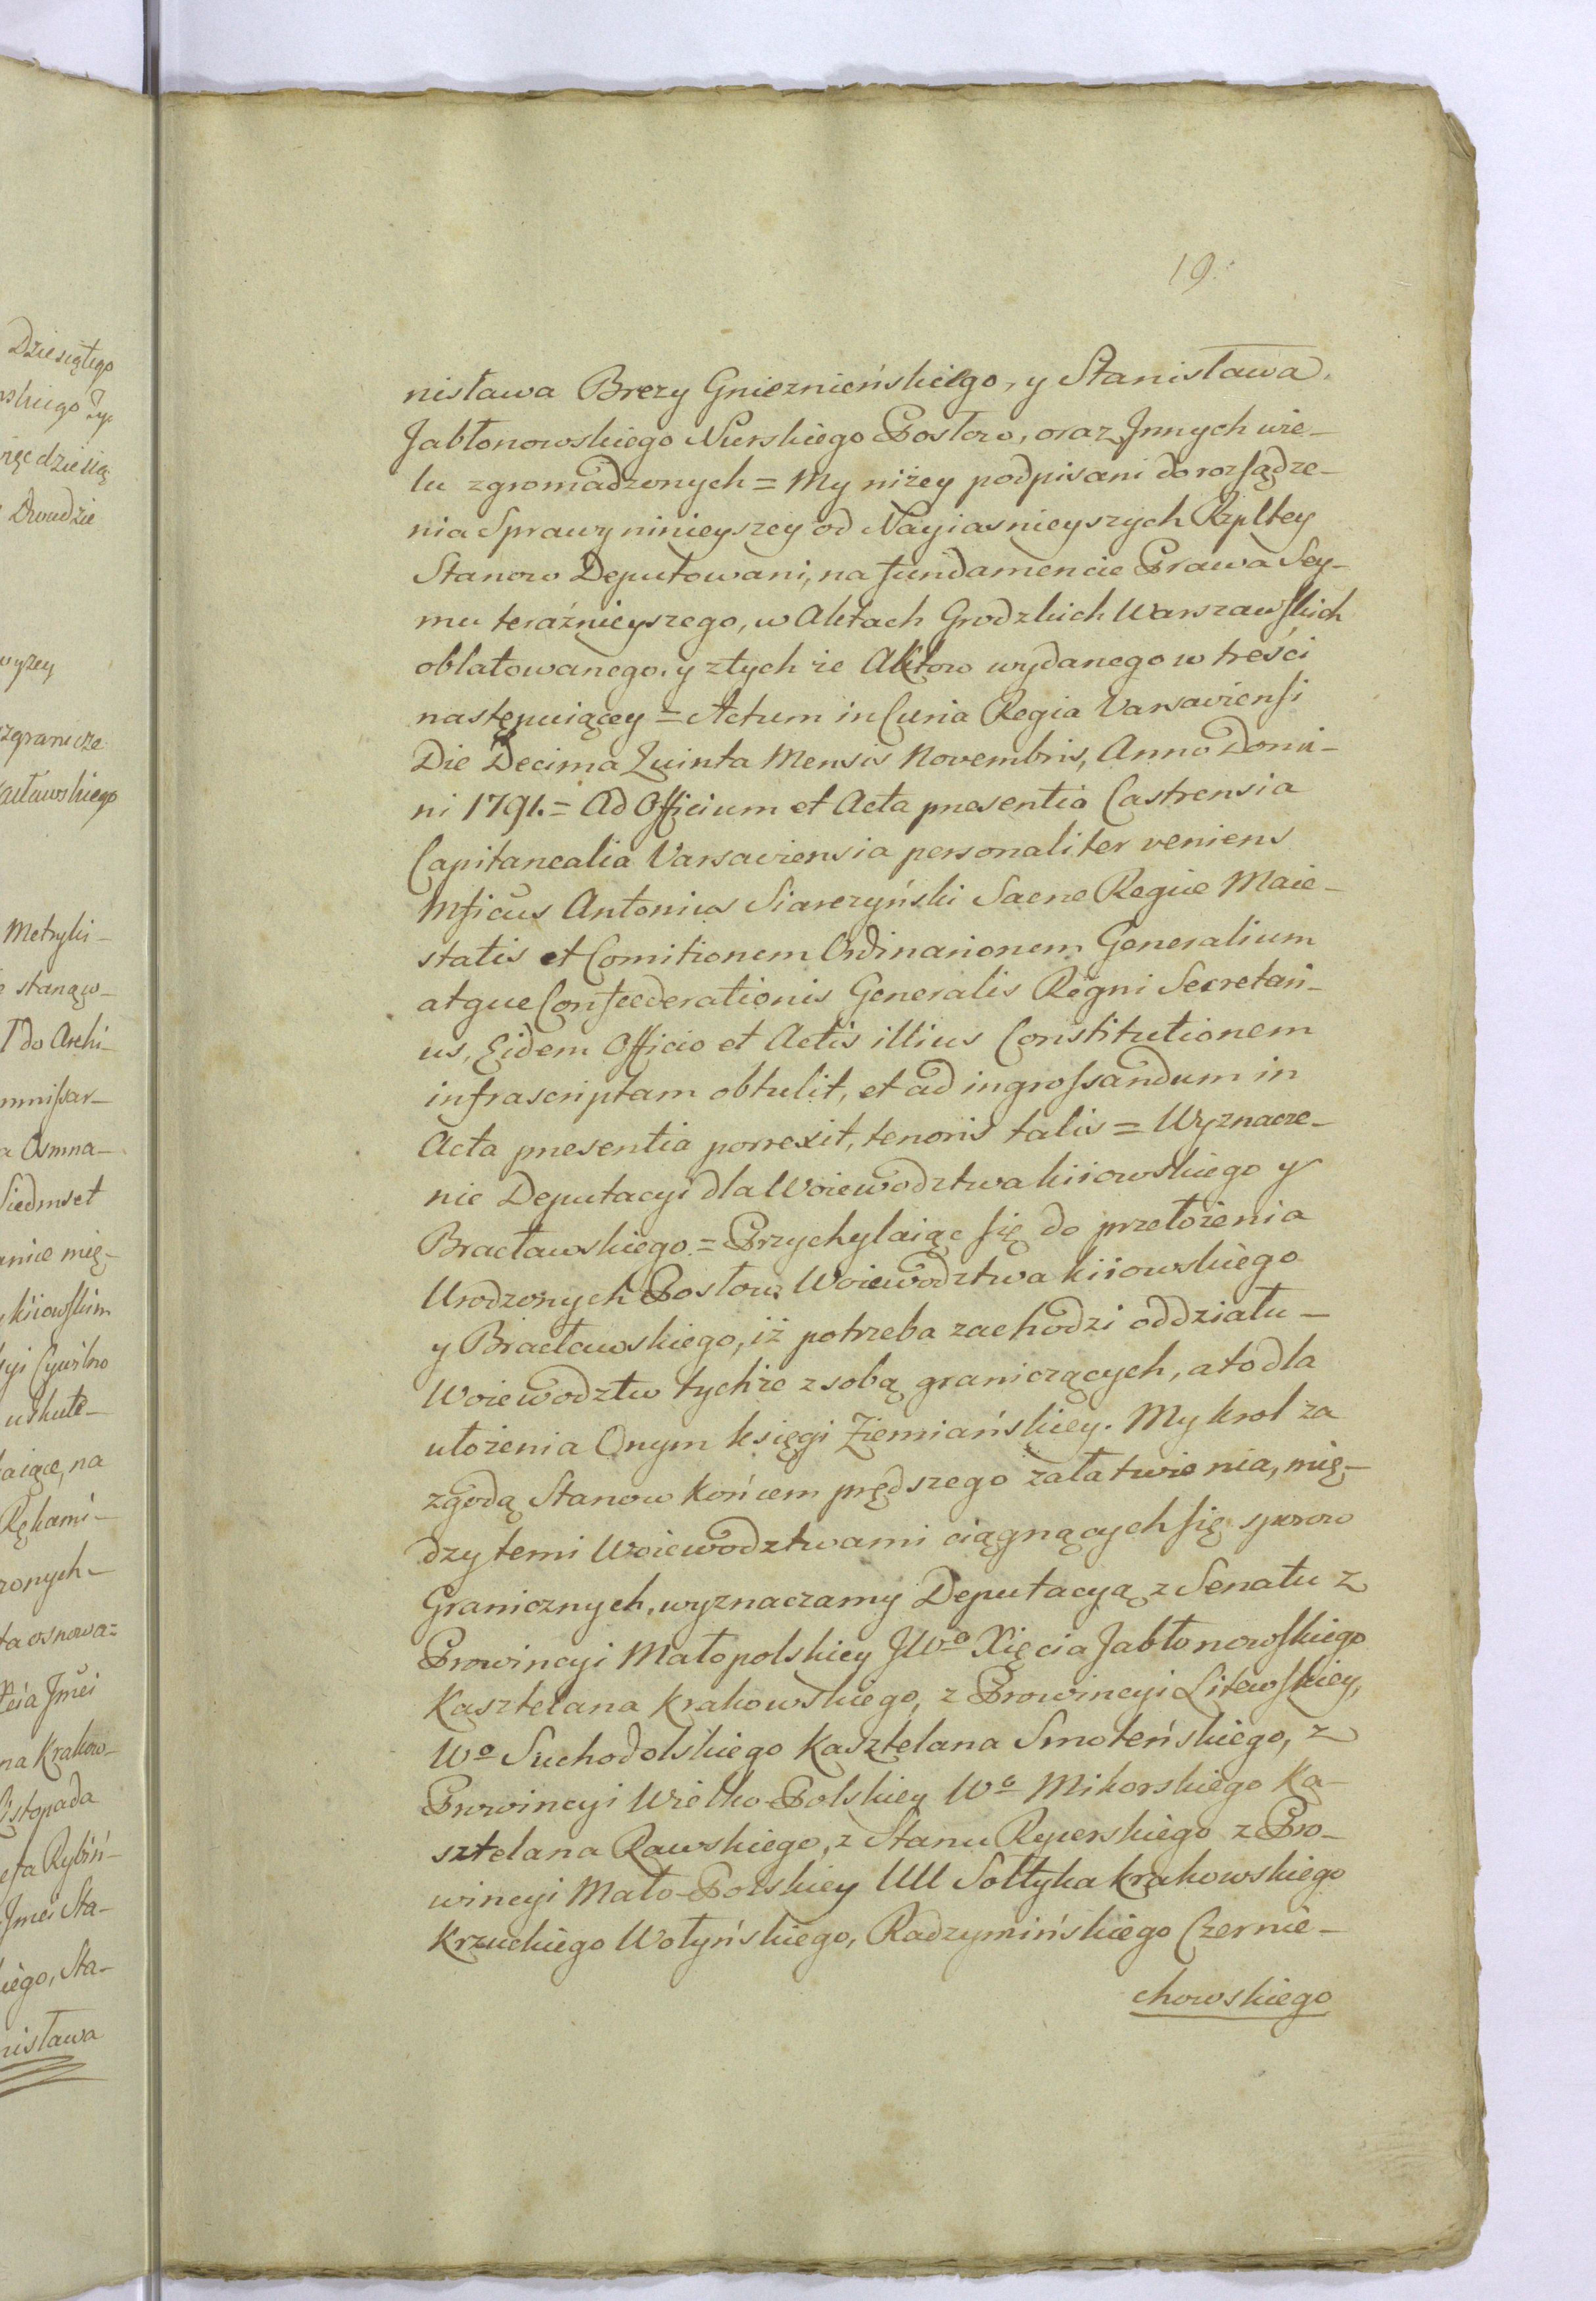 19.
nisława Brezy Gnieznieńskiego, y Stanisława
Jabłonowskiego Nurskiego Posłow, oraz Jnnych wie-
lu zgromadzonych = My niżey podpisani do rozsądze-
nia Sprawy ninieyszey od Nayiasnieyszych Rzpltey
Stanow Deputowani, na fundamencie Prawa Sey-
mu teraźnieyszego, w Aktach Grodzkich Warszawskich
oblatowanego, y z tych że Aktow wydanego w treści
następuiącey = Actum in Curia Regia Varsaviensi
Die Decima Quinta Mensis Novembris, Anno Domi-
ni 1791. = Ad Officium et Acta presentia Castrensia
Capitanealia Varsaviensia personaliter veniens
Mficus Antonius Siarczyński Sacre Regie Maie-
statis et Comitionem Ordinarionem Generalium
atque Confœderationis Generalis Regni Secretari-
us, Eidem Officio et Actis illius Constitutionem
infrascriptam obtulit, et ad ingrossandum in
Acta presentia porrexit, tenoris talis = Wyznacze-
nie Deputacyi dla Woiewodztwa kiiowskiego y
Bracławskiego. = Przychylaiąc się do przełożenia
Urodzonych Posłow Woiewodztwa kiiowskiego
y Bracławskiego, iż potrzeba zachodzi oddziału -
Woiewodztw tychże z sobą graniczących, a to dla
ułożenia Onym księgi Ziemiańskiey. My krol za
zgodą Stanow końcem prędszego załatwienia, mię-
dzy temi Woiewodztwami ciągnących się sporow
Granicznych, wyznaczamy Deputacyą z Senatu z
Prowincyi Małopolskiey JWo Xięcia Jabłonowskiego
Kasztelana Krakowskiego, z Prowincyi Litewskiey,
Wo Suchodolskiego Kasztelana Smoleńskiego, z
Prowincyi Wielko-Polskiey Wo Mikorskiego Ka-
sztelana Rawskiego, z Stanu Rycerskiego z Pro-
wincyi Mało-Polskiey UU Sołtyka Krakowskiego
Krzuckiego Wołyńskiego, Radzymińskiego Czernie-
chowskiego
Dziesiątego
Dwudzie
wyzey
Metryki-
do Archi-
Osmna-
Siedmset
kiiowskim
na Krakow-
Listopada
Jmci Sta-
nisława